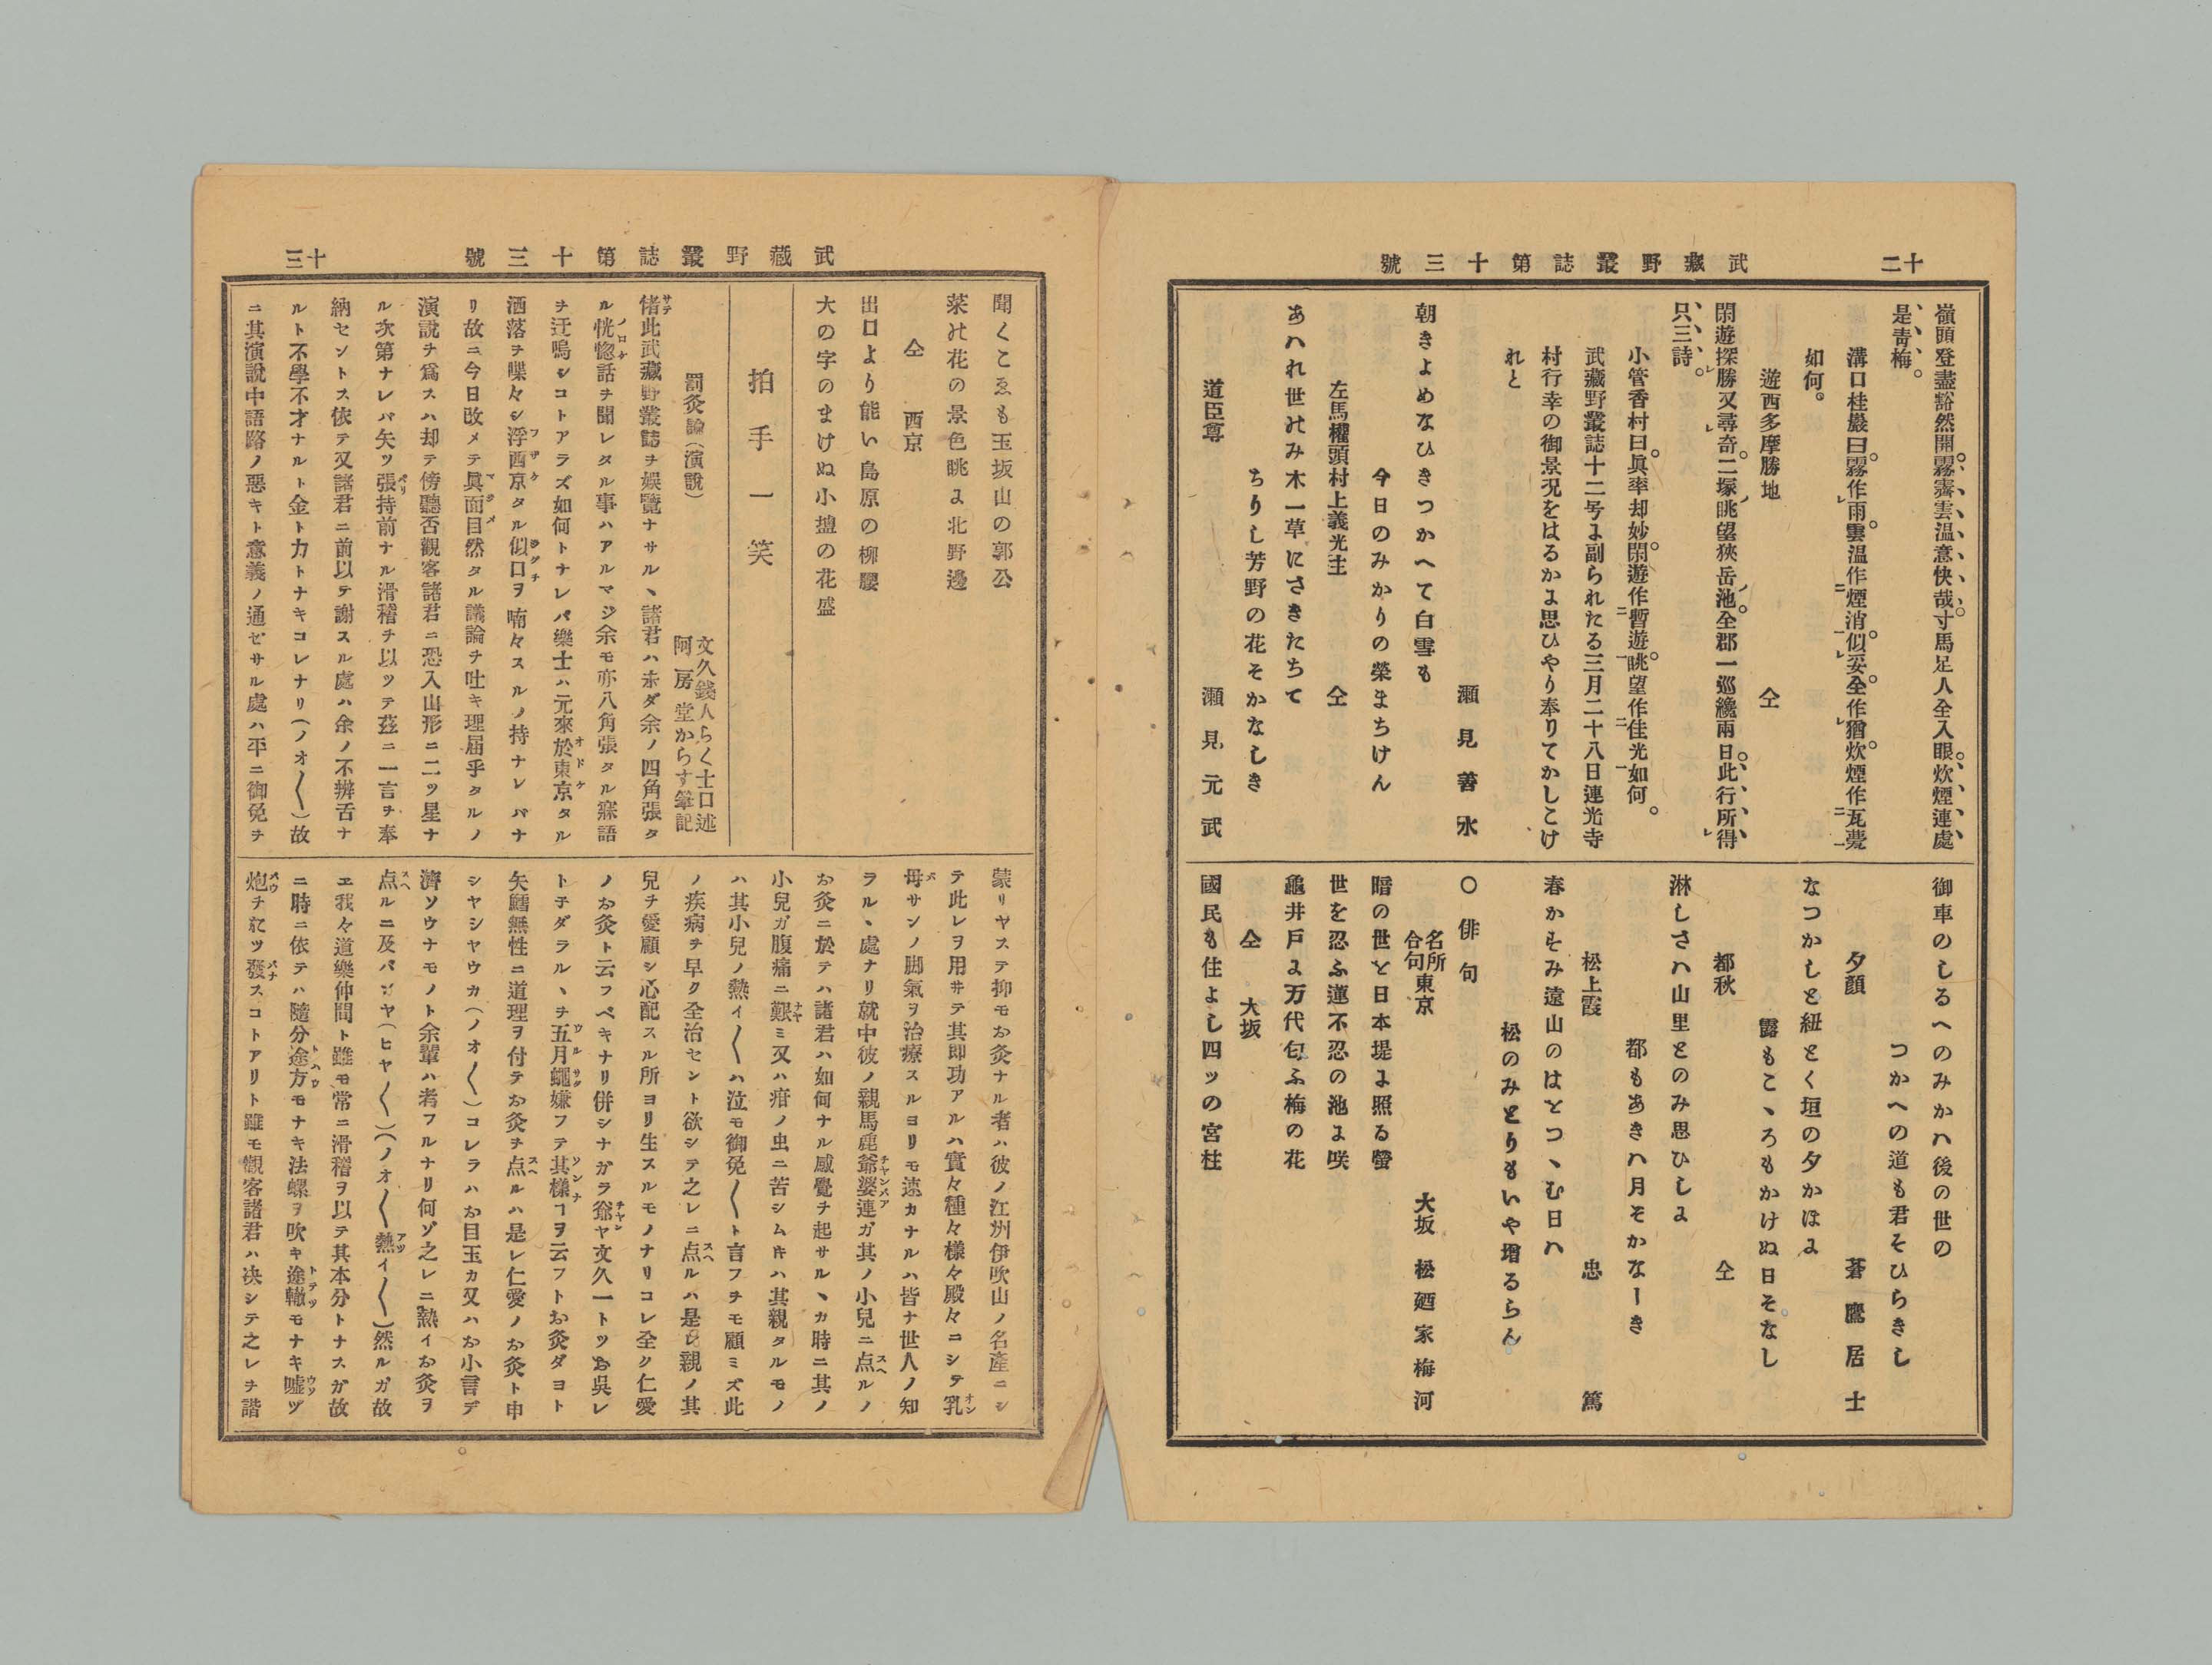 十二
武藏野叢誌第十三號
嶺頭登盡豁然開。霧霽雲温意快哉。寸馬足人全入眼。炊煙連處
是靑梅。
溝口桂巖曰。霧作雨。雲温作煙消。似妥。全作猶。炊煙作瓦甍
如何。
遊西多摩勝地　仝
閑遊探勝又尋奇。二塚眺望狹岳池。全郡一巡纔兩日。此行所得
只三詩。
小管香村曰。眞率却妙。閑遊作暫遊。眺望作佳光如何。
武藏野叢誌十二号よ副られたる三月二十八日連光寺
村行幸の御景況をはるかよ思ひやり奉りてかしこけ
れと
瀬見善水
朝きよめなひきつかへて白雪も
今日のみかりの榮まちけん
左馬權頭村上義光主　仝
あハれ世ににみ木一草にさきたちて
ちりし芳野の花そかなしき
道臣尊　瀬見元武
御車のしるへのみかハ後の世の
つかへの道も君そひらきし
夕顔　蒼鷹居士
なつかしと紐とく垣の夕かほよ
露もこゝろもかけぬ日そなし
都秋　仝
淋しさハ山里とのみ思ひしよ
都もあきハ月そかなしき
松上霞　忠篤
春かすみ遠山のはとつゝむ日ハ
松のみとりもいや増るらん
〇俳句
名所合句東京　大坂　松廼家梅河
暗の世と日本堤よ照る螢
世を忍ふ蓮不忍の池よ咲
龜井戸よ万代匂ふ梅の花
仝　大坂
國民も住よし四ッの宮柱
武藏野叢誌第十三號
十三
聞くこゑも玉坂山の郭公
菜の花の景色眺よ北野邊
仝　西京
出口より能い島原の柳腰
大の字のまけぬ小𡉻の花盛
拍手一笑
罰灸論(演說)
文久錢人らく士口述
阿房堂からす筆記
偖此武藏野叢誌ヲ娯覽ナサルヽ諸君ハ未ダ余ノ四角張タ
ル恍惚話ヲ聞レタル事ハアルマジ余モ亦八角張タル寐語
ヲ迂鳴シコトアラズ如何トナレバ樂士ハ元來於東京タル
洒落ヲ喋々シ浮西京タル似口ヲ喃々スルノ持ナレバナ
リ故ニ今日改メテ眞面目然タル議論ヲ吐キ理屈乎タルノ
演說ヲ爲スハ却テ傍聽否觀客諸君ニ恐入山形ニ二ッ星ナ
ル次第ナレバ矢ッ張持前ナル滑稽ヲ以ッテ茲ニ一言ヲ奉
納セントス依テ又諸君ニ前以テ謝スル處ハ余ノ不辨舌ナ
ルト不學不才ナルト金ト力トナキコレナリ(ノオ〱)故
ニ其演說中語路ノ惡キト意義ノ通ゼサル處ハ平ニ御免ヲ
蒙リヤステ抑モお灸ナル者ハ彼ノ江州伊吹山ノ名產ニシ
テ此レヲ用井テ其即功アルハ實々種々樣々殿々コシテ乳
母サンノ脚氣ヲ治療スルヨリモ速カナルハ皆ナ世人ノ知
ラルヽ處ナリ就中彼ノ親馬鹿爺婆連ガ其ノ小兒ニ点ルノ
お灸ニ於テハ諸君ハ如何ナル感覺ヲ起サルヽカ時ニ其ノ
小兒ガ腹痛ニ艱ミ又ハ疳ノ虫ニ苦シムキハ其親タルモノ
ハ其小兒ノ熱イ〱ハ泣モ御免〱ト言フヲモ顧ミズ此
ノ疾病ヲ早ク全治セント欲シテ之レニ点ルハ是レ親ノ其
兒ヲ愛顧シ心配スル所ヨリ生スルモノナリコレ全ク仁愛
ノお灸ト云フベキナリ併シナガラ爺ヤ文久一トツお吳レ
トヲダラルヽヲ五月蠅嫌フテ其樣ヿヲ云フトお灸ダヨト
矢鱈無性ニ道理ヲ付テお灸ヲ点ルハ是レ仁愛ノお灸ト申
シヤシヤウカ(ノオ〱)コレラハお目玉カ又ハお小言デ
濟ソウナモノト余輩ハ考フルナリ何ゾ之レニ熱イお灸ヲ
点ルニ及バンヤ(ヒヤ〱)(ノオ〱熱イ〱)然ルガ故
ヱ我々道樂仲間ト雖モ常ニ滑稽ヲ以テ其本分トナスガ故
ニ時ニ依テハ隨分途方モナキ法螺ヲ吹キ途轍モナキ嘘ヅ
炮ヲ放ツ發スコトアリト雖モ觀客諸君ハ決シテ之レヲ諧